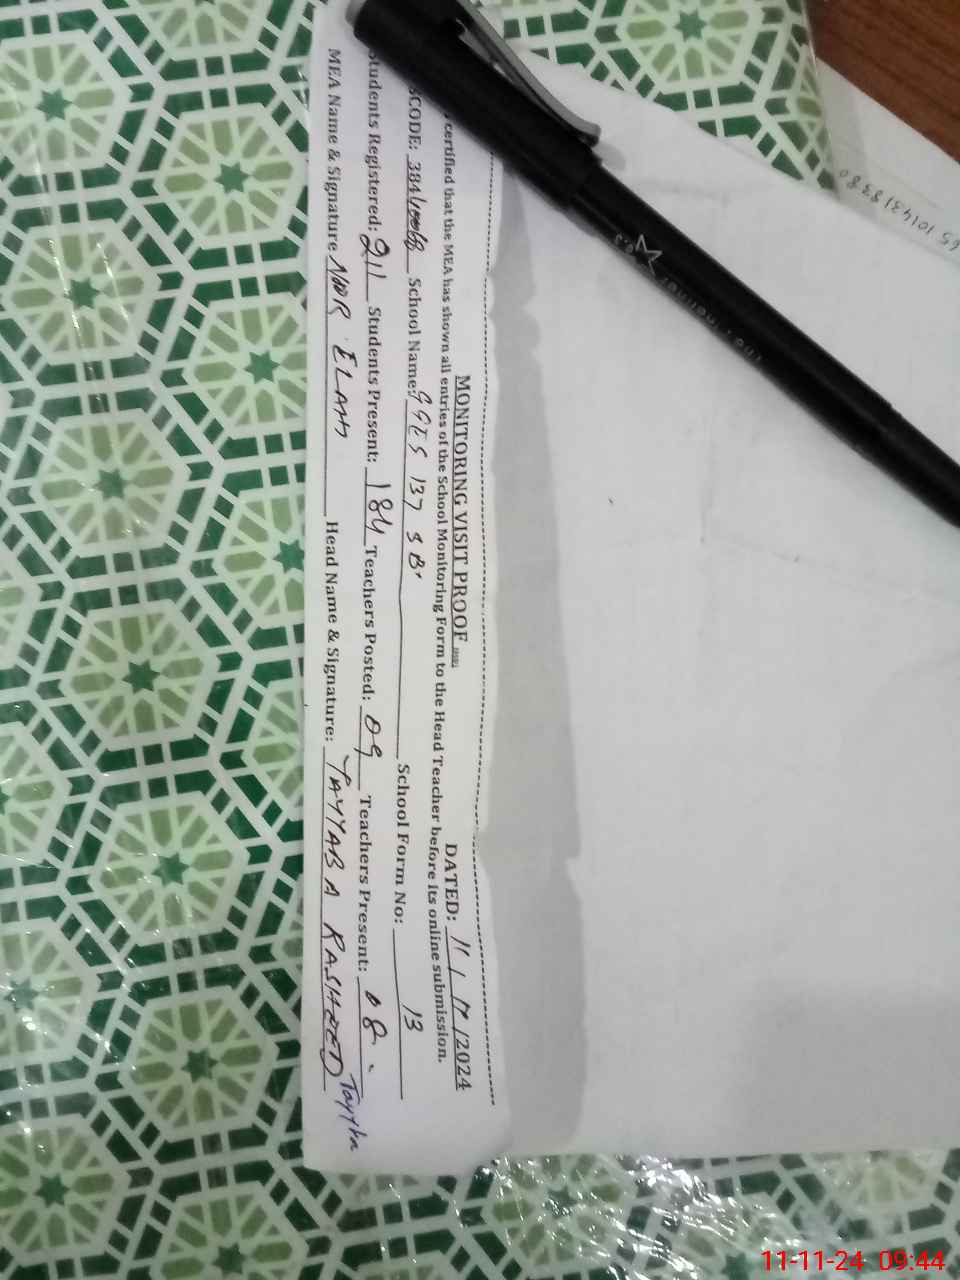 MONITORING VISIT PROOF
DATED: 11 / 11 /2024
certified that the MEA has shown all entries of the School Monitoring Form to the Head Teacher before its online submission.
SCODE: School Name: GGES 137 SB. School Form No: 13
Students Registered: 211 Students Present: 184 Teachers Posted: 09 Teachers Present: 08
MEA Name & Signature NOOR ELAHI Head Name & Signature: TAYYABA RASHEED Tayyba
0.3
11-11-24 09:44